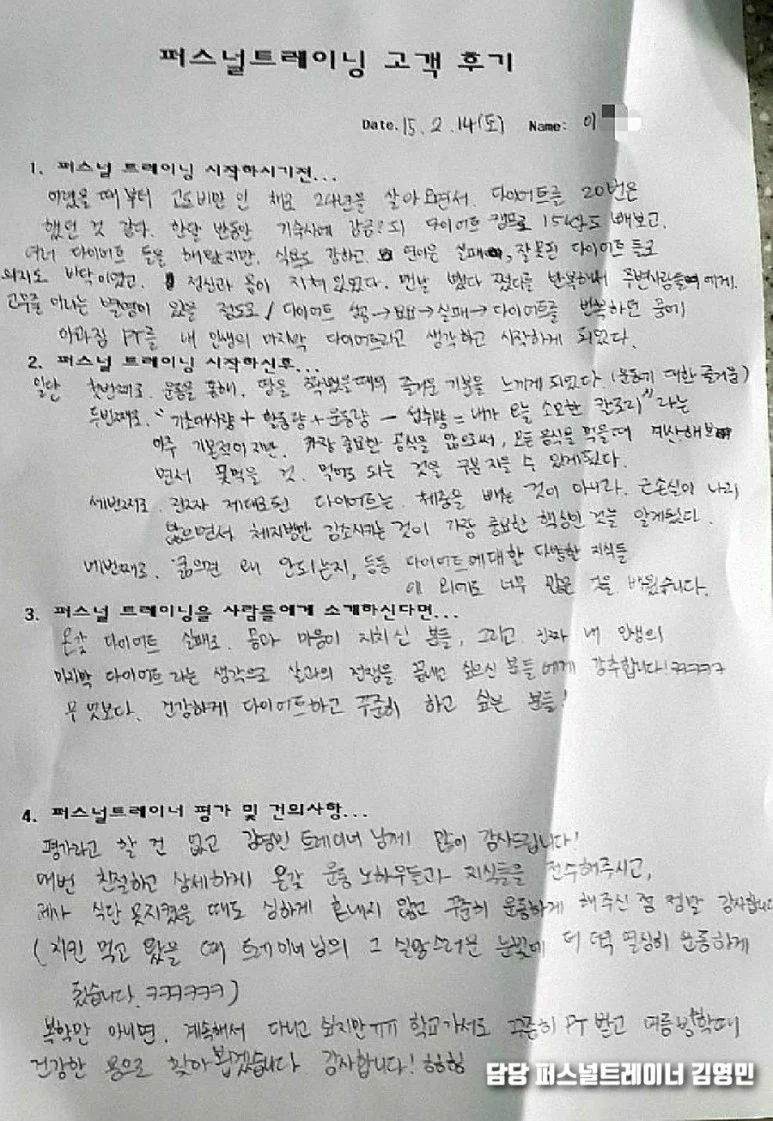 퍼스널트레이닝 고객 후기
Date. 15. 2. 14(토) Name: 이
1. 퍼스널 트레이닝 시작하시기전...
어렸을 때부터 고도비만 인 채로 24년을 살아오면서. 다이어트를 20번은
했던 것 같다. 한달 반동안 기숙사에 감금되 다이어트 캠프로 15kg도 빼보고,
여러 다이어트 들을 해봤지만, 식욕은 강하고, 연이은 실패, 잘못된 다이어트 들로
의지도 바닥이였고, 정신과 몸이 지쳐있었다. 맨날 뺐다 쪘다를 반복해서 주변사람들에게.
고무줄 이라는 별명이 있을 정도로 / 다이어트 성공→요요→실패→다이어트를 반복하던 중에
PT를 내 인생의 마지막 다이어트라고 생각하고 시작하게 되었다.
2. 퍼스널 트레이닝 시작하신후...
일단 첫번째로. 운동을 통해, 땀을 쫙뺐을때의 즐거운 기분을 느끼게 되었다. (운동에 대한 즐거움)
두번째로. "기초대사량 + 활동량 + 운동량 - 섭취량 = 내가 오늘 소모한 칼로리" 라는
아주 기본적이지만, 가장 중요한 공식을 앎으로써, 모든 음식을 먹을때 계산해보
면서 못먹을 것. 먹어도 되는 것을 구분 지을 수 있게됬다.
세번째로. 진짜 제대로된 다이어트는. 체중을 빼는 것이 아니라. 근손실이 나지
않으면서 체지방만 감소시키는 것이 가장 중요한 핵심인 것을 알게됬다.
네번째로. 굶으면 왜 안되는지, 등등 다이어트에대한 다양한 지식들
이 외에도 너무 많은 것을 배웠습니다.
3. 퍼스널 트레이닝을 사람들에게 소개하신다면...
온갖 다이어트 실패로. 몸과 마음이 지치신 분들, 그리고 진짜 내 인생의
마지막 다이어트 라는 생각으로 살과의 전쟁을 끝내고 싶으신 분들에게 강추합니다! ㅋㅋㅋㅋㅋ
무엇보다. 건강하게 다이어트하고 꾸준히 하고 싶은 분들!
4. 퍼스널트레이너 평가 및 건의사항...
평가라고 할 건 없고 김영민 트레이너 님께! 많이 감사드립니다!
매번 친절하고 상세하게 온갖 운동 노하우들과 지식들을 전수해주시고,
제가 식단 못지켰을 때도 심하게 혼내시지 않고 꾸준히 운동하게 해주신 점 정말 감사합니다
(치킨 먹고 왔을 때 트레이너님의 그 실망스러운 눈빛에 더 떡 열심히 운동하게
됬습니다. ㅋㅋㅋㅋㅋㅋ)
복학만 아니면. 계속해서 다니고 싶지만 ㅠㅠ 학교가서도 꾸준히 PT 받고 여름방학때
건강한 몸으로 찾아 뵙겠습니다 감사합니다!
담당 퍼스널트레이너 김영민